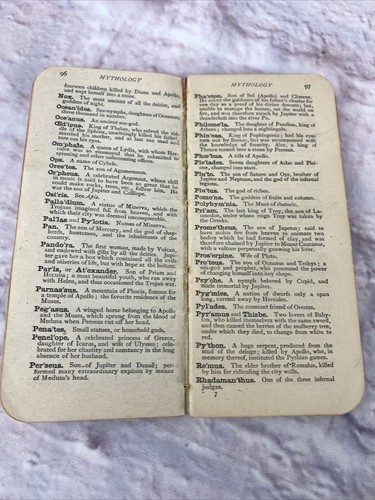 96
MYTHOLOGY
fourteen children killed by Diana and Apollo,
and wept herself into a stone.
Nox. The most ancient of all the deities, and
goddess of night.
Ocean'ides. Sea-nymphs, daughters of Oceanus;
three thousand in number.
Oce'anus. An ancient sea-god.
Œd'ipus. King of Thebes, who solved the rid-
dle of the Sphinx, unwittingly killed his father,
married his mother, and at last ran mad and
tore out his eyes.
Om'phale. A queen of Lydia, with whom Her-
cules was so enamored that he submitted to
spinning and other unbecoming offices.
Ops. A name of Cybele.
Ores'tes. The son of Agamemnon.
Or'pheus. A celebrated Argonaut, whose skill
in music is said to have been so great that he
could make rocks, trees, etc., follow him. He
was the son of Jupiter and Calliope.
Osi'ris. See Apis.
Palla'dium. A statue of Minerva, which the
Trojans imagined fell from heaven, and with
which their city was deemed unconquerable.
Pal'las and Py'lotis. Names of Minerva.
Pan. The son of Mercury, and the god of shep-
herds, huntsmen, and the inhabitants of the
country.
Pando'ra. The first woman, made by Vulcan,
and endowed with gifts by all the deities. Jupi-
ter gave her a box which contained all the evils
and miseries of life, but with hope at the bottom.
Par'is, or Al'exander. Son of Priam and
Hecuba; a most beautiful youth, who ran away
with Helen, and thus occasioned the Trojan war.
Parnas'sus. A mountain of Phocis, famous for
a temple of Apollo; the favorite residence of the
Muses.
Peg'asus. A winged horse belonging to Apollo
and the Muses, which sprung from the blood of
Medusa when Perseus cut off her head.
Pena'tes. Small statues, or household gods.
Penel'ope. A celebrated princess of Greece,
daughter of Icarus, and wife of Ulysses; cele-
brated for her chastity and constancy in the long
absence of her husband.
Per'seus. Son of Jupiter and Danaë; per-
formed many extraordinary exploits by means
of Medusa's head.
MYTHOLOGY
97
Pha'eton. Son of Sol (Apollo) and Climene.
He asked the guidance of his father's chariot for
one day as a proof of his divine descent; but,
unable to manage the horses, set the world on
fire, and was therefore struck by Jupiter with a
thunderbolt into the river Po.
Philome'la. The daughter of Pandion, king of
Athens; changed into a nightingale.
Phin'eas. King of Paphlagonia; had his eyes
torn out by Boreas, but was recompensed with
the knowledge of futurity. Also, a king of
Thrace turned into a stone by Perseus.
Phœ'bus. A title of Apollo.
Ple'iades. Seven daughters of Atlas and Plei-
one, changed into stars.
Plu'to. The son of Saturn and Ops, brother of
Jupiter and Neptune, and the god of the infernal
regions.
Plu'tus. The god of riches.
Pomo'na. The goddess of fruits and autumn.
Polyhym'nia. The Muse of rhetoric.
Pri'am. The last king of Troy; the son of Lao-
medon, under whose reign Troy was taken by
the Greeks.
Prome'theus. The son of Japetus; said to
have stolen fire from heaven to animate two
bodies which he had formed of clay, and was
therefore chained by Jupiter to Mount Caucasus,
with a vulture perpetually gnawing his liver.
Pros'erpine. Wife of Pluto.
Pro'teus. The son of Oceanus and Tethys; a
sea-god and prophet, who possessed the power
of changing himself into any shape.
Psy'che. A nymph beloved by Cupid, and
made immortal by Jupiter.
Pyg'mies. A nation of dwarfs only a span
long, carried away by Hercules.
Pyl'ades. The constant friend of Orestes.
Pyr'amus and Thisbe. Two lovers of Baby-
lon, who killed themselves with the same sword,
and thus caused the berries of the mulberry tree,
under which they died, to change from white to
red.
Py'thon. A huge serpent, produced from the
mud of the deluge; killed by Apollo, who, in
memory thereof, instituted the Pythian games.
Re'mus. The elder brother of Romulus, killed
by him for ridiculing the city walls.
Rhadaman'thus. One of the three infernal
judges.
7